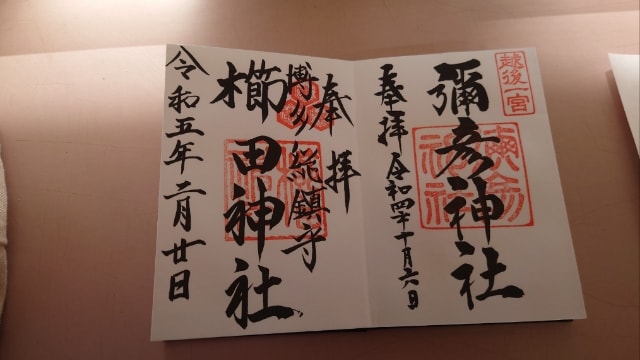 越後一宮
彌彦神社
奉拝 令和四年十月六日
奉拝
博多総鎮守
櫛田神社
令和五年二月廿日